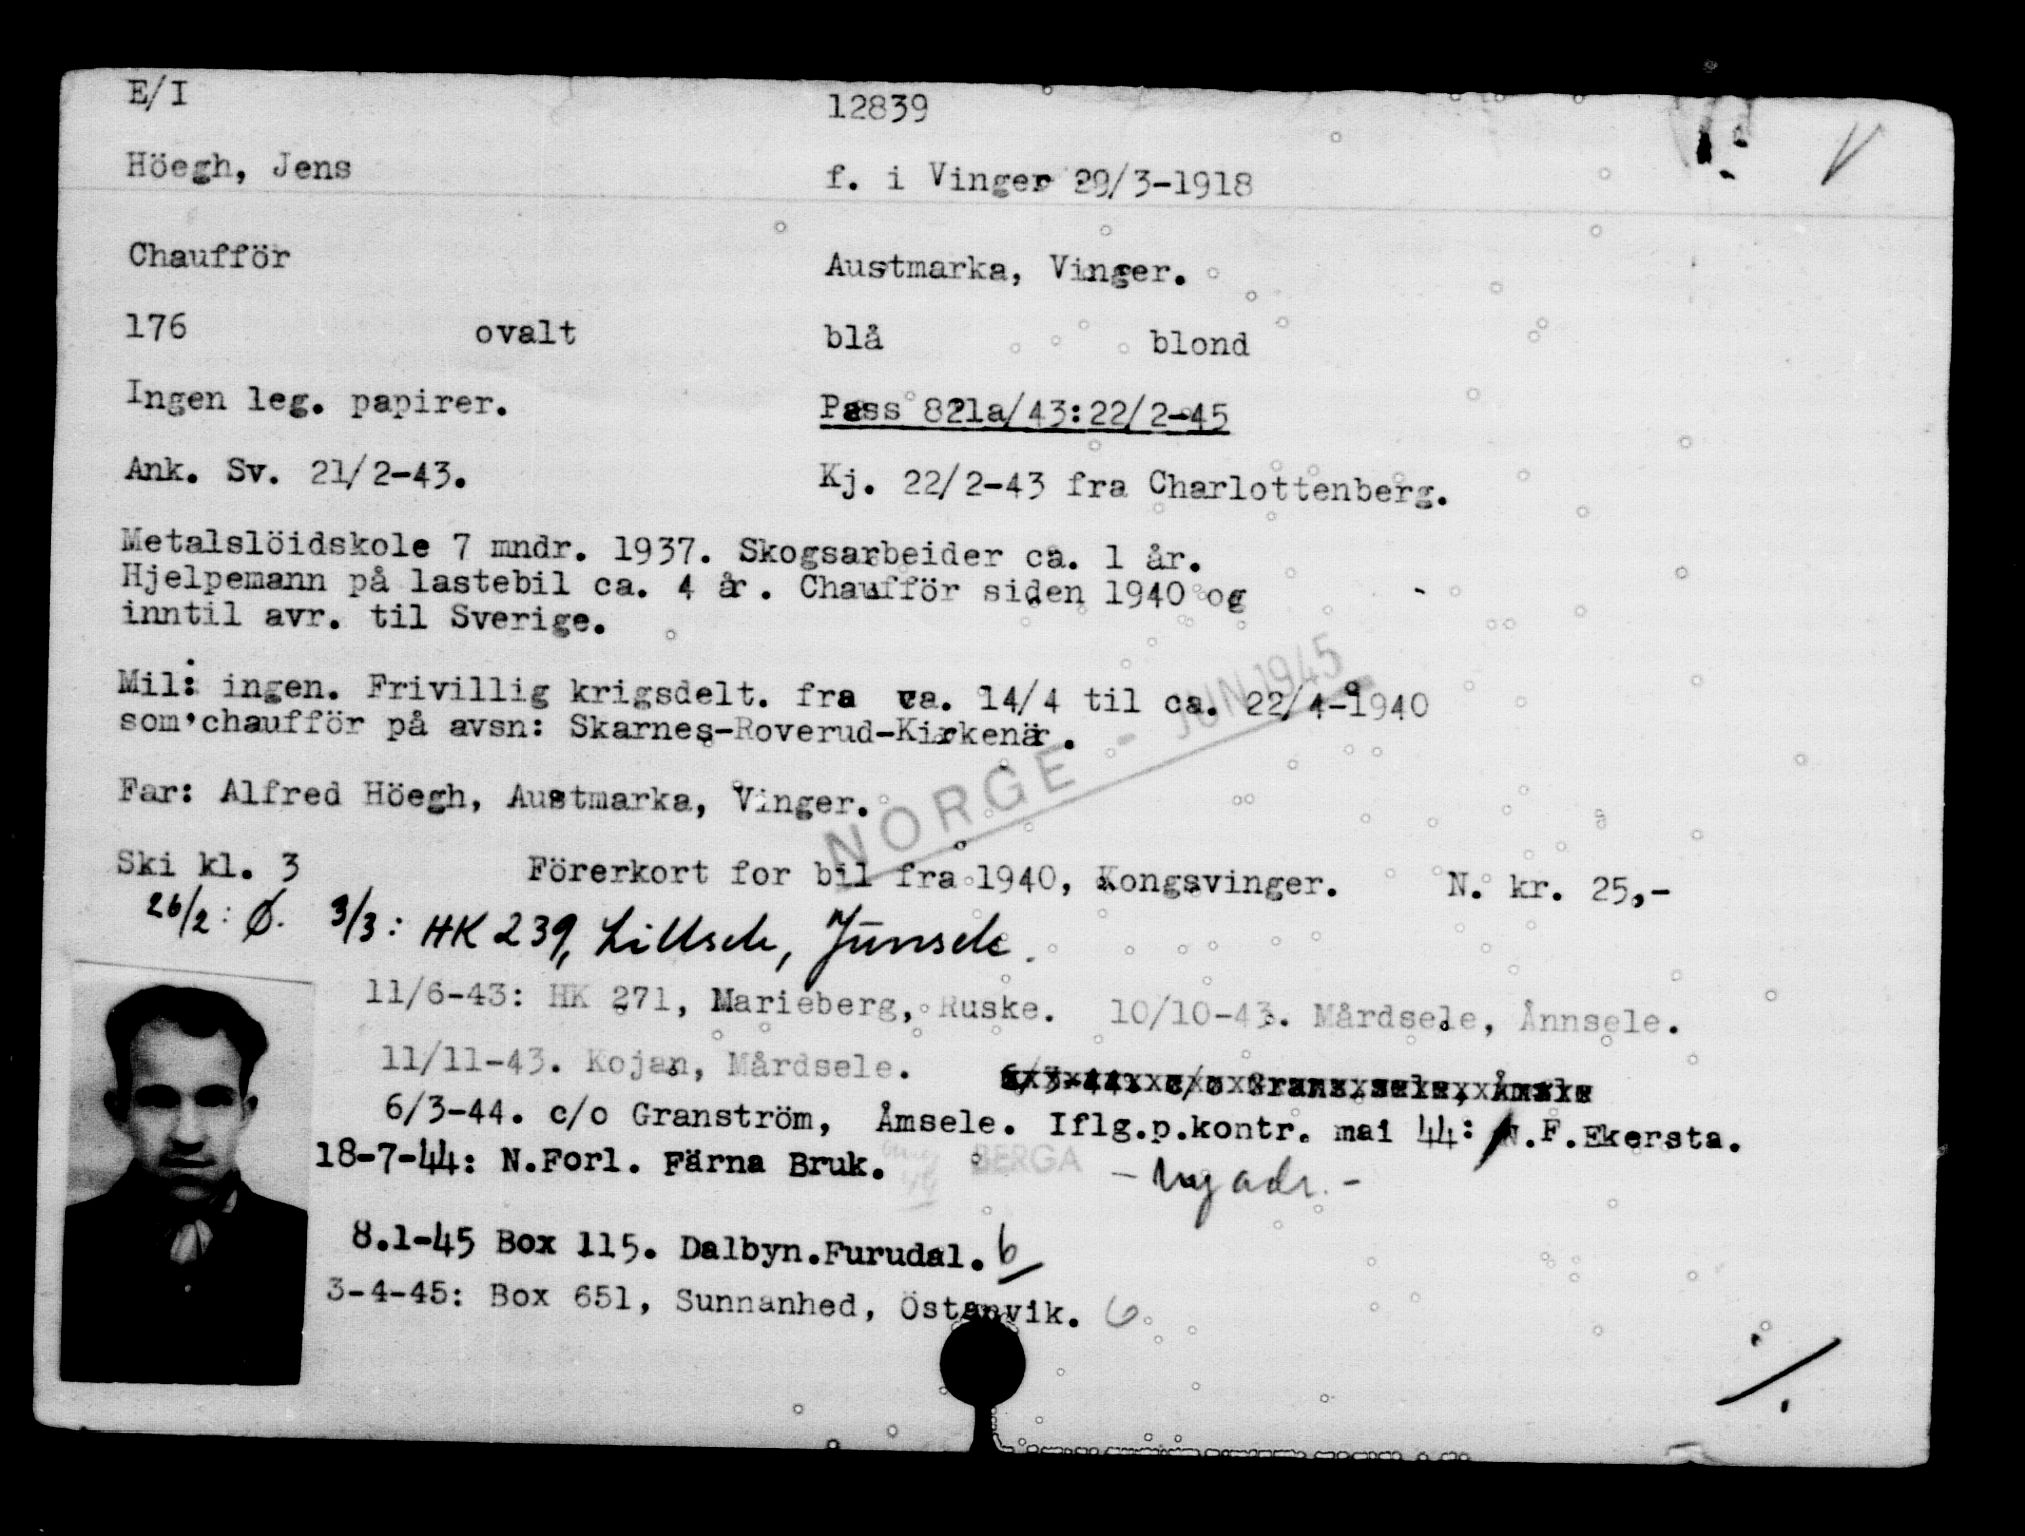 E/I 12839
Höegh, Jens f. i Vinger 29/3-1918
Chaufför Austmarka, Vinger.
176 ovalt blå blond
Ingen leg. papirer. Pass 821a/43:22/2-45
Ank. Sv. 21/2-43. Kj. 22/2-43 fra Charlottenberg.
Metalslöidskole 7 mndr. 1937. Skogsarbeider ca. 1 år.
Hjelpemann på lastebil ca. 4 år. Chaufför siden 1940 og
inntil avr. til Sverige.
Mil: ingen. Frivillig krigsdelt. fra ca. 14/4 til ca. 22/4-1940
som chaufför på avsn: Skarnes-Roverud-Kirkenär.
NORGE - JUN 1945
Far: Alfred Höegh, Austmarka, Vinger.
Ski kl. 3 Förerkort for bil fra 1940, Kongsvinger. N. kr. 25,-
26/2: Ø. 3/3: HK 239, Lillsele, Junsele.
11/6-43: HK 271, Marieberg, Ruske. 10/10-43. Mårdsele, Ånnsele.
11/11-43. Kojan, Mårdsele.
6/3-44. c/o Granström, Åmsele. Iflg.p.kontr. mai 44: N.F.Ekersta.
18-7-44: N.Forl. Färna Bruk. BERGA - Ny adr. -
8.1-45 Box 115. Dalbyn.Furudal. 6
3-4-45: Box 651, Sunnanhed, Östanvik. 6